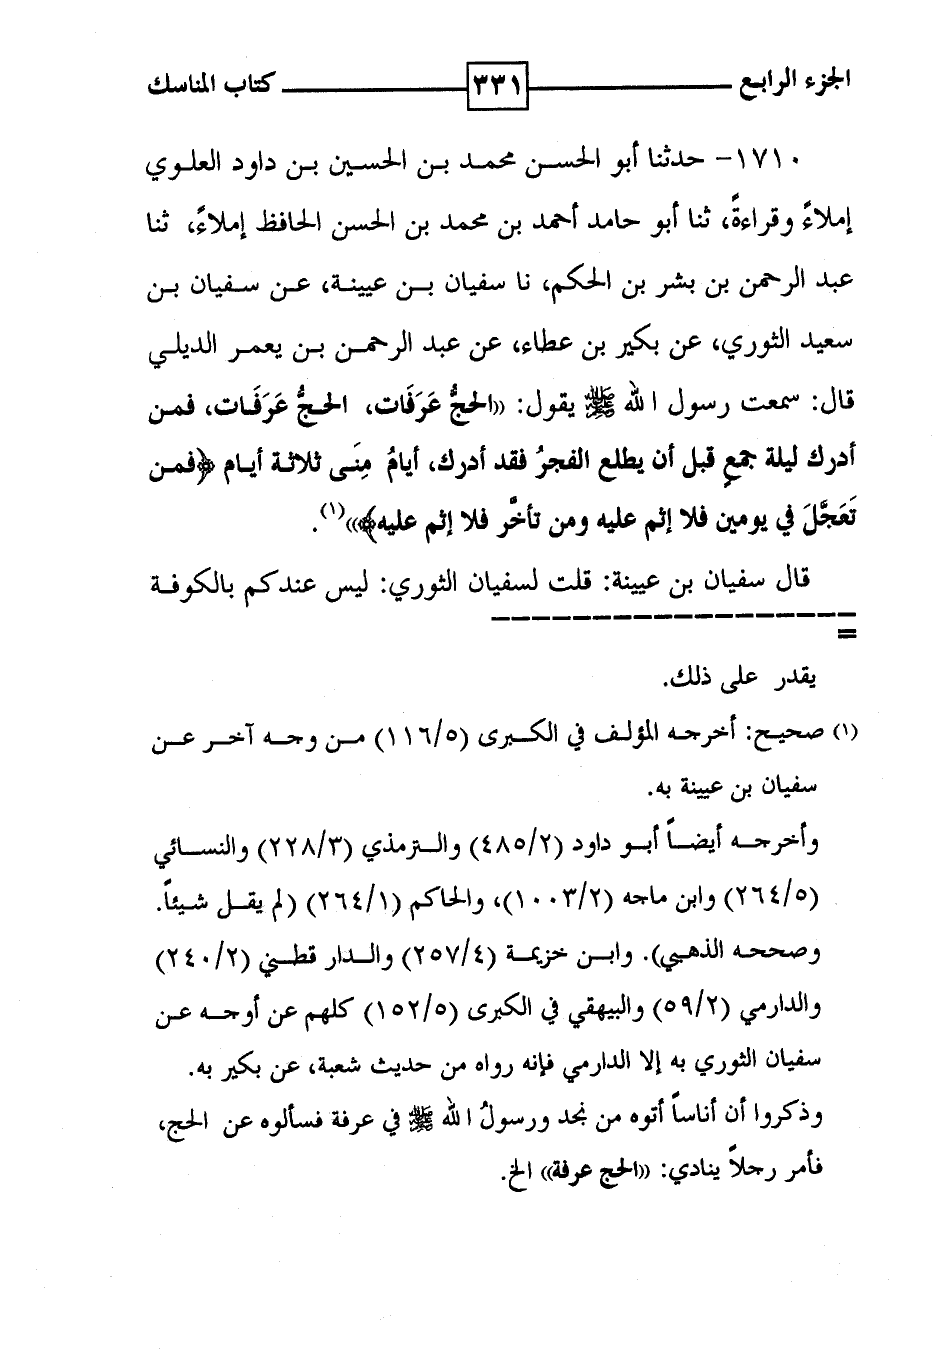 الجزء الرابع ٣٣١ كتاب المناسك
١٧١٠- حدثنا أبو الحسن محمد بن الحسين بن داود العلوي
إملاءً وقراءةً، ثنا أبو حامد أحمد بن محمد بن الحسن الحافظ إملاءً، ثنا
عبد الرحمن بن بشر بن الحكم، نا سفيان بن عيينة، عن سفيان بن
سعيد الثوري، عن بكير بن عطاء، عن عبد الرحمن بن يعمر الديلي
قال: سمعت رسول الله ﷺ يقول: ((الحجُّ عَرَفَات، الحجُّ عَرَفَات، فمن
أدرك ليلة جمعٍ قبل أن يطلع الفجرُ فقد أدرك، أيامُ مِنَى ثلاثة أيام ﴿فمن
تَعَجَّلَ في يومين فلا إثم عليه ومن تأخَّر فلا إثم عليه﴾))(١).
قال سفيان بن عيينة: قلت لسفيان الثوري: ليس عندكم بالكوفة
=
يقدر على ذلك.
(١) صحيح: أخرجه المؤلف في الكبرى (١١٦/٥) من وجه آخر عن
سفيان بن عيينة به.
وأخرجه أيضاً أبو داود (٤٨٥/٢) والترمذي (٢٢٨/٣) والنسائي
(٢٦٤/٥) وابن ماجه (١٠٠٣/٢)، والحاكم (٢٦٤/١) (لم يقل شيئاً.
وصححه الذهبي). وابن خزيمة (٢٥٧/٤) والدار قطني (٢٤٠/٢)
والدارمي (٥٩/٢) والبيهقي في الكبرى (١٥٢/٥) كلهم عن أوجه عن
سفيان الثوري به إلا الدارمي فإنه رواه من حديث شعبة، عن بكير به.
وذكروا أن أناساً أتوه من نجد ورسولُ الله ﷺ في عرفة فسألوه عن الحج،
فأمر رجلاً ينادي: ((الحج عرفة)) الخ.